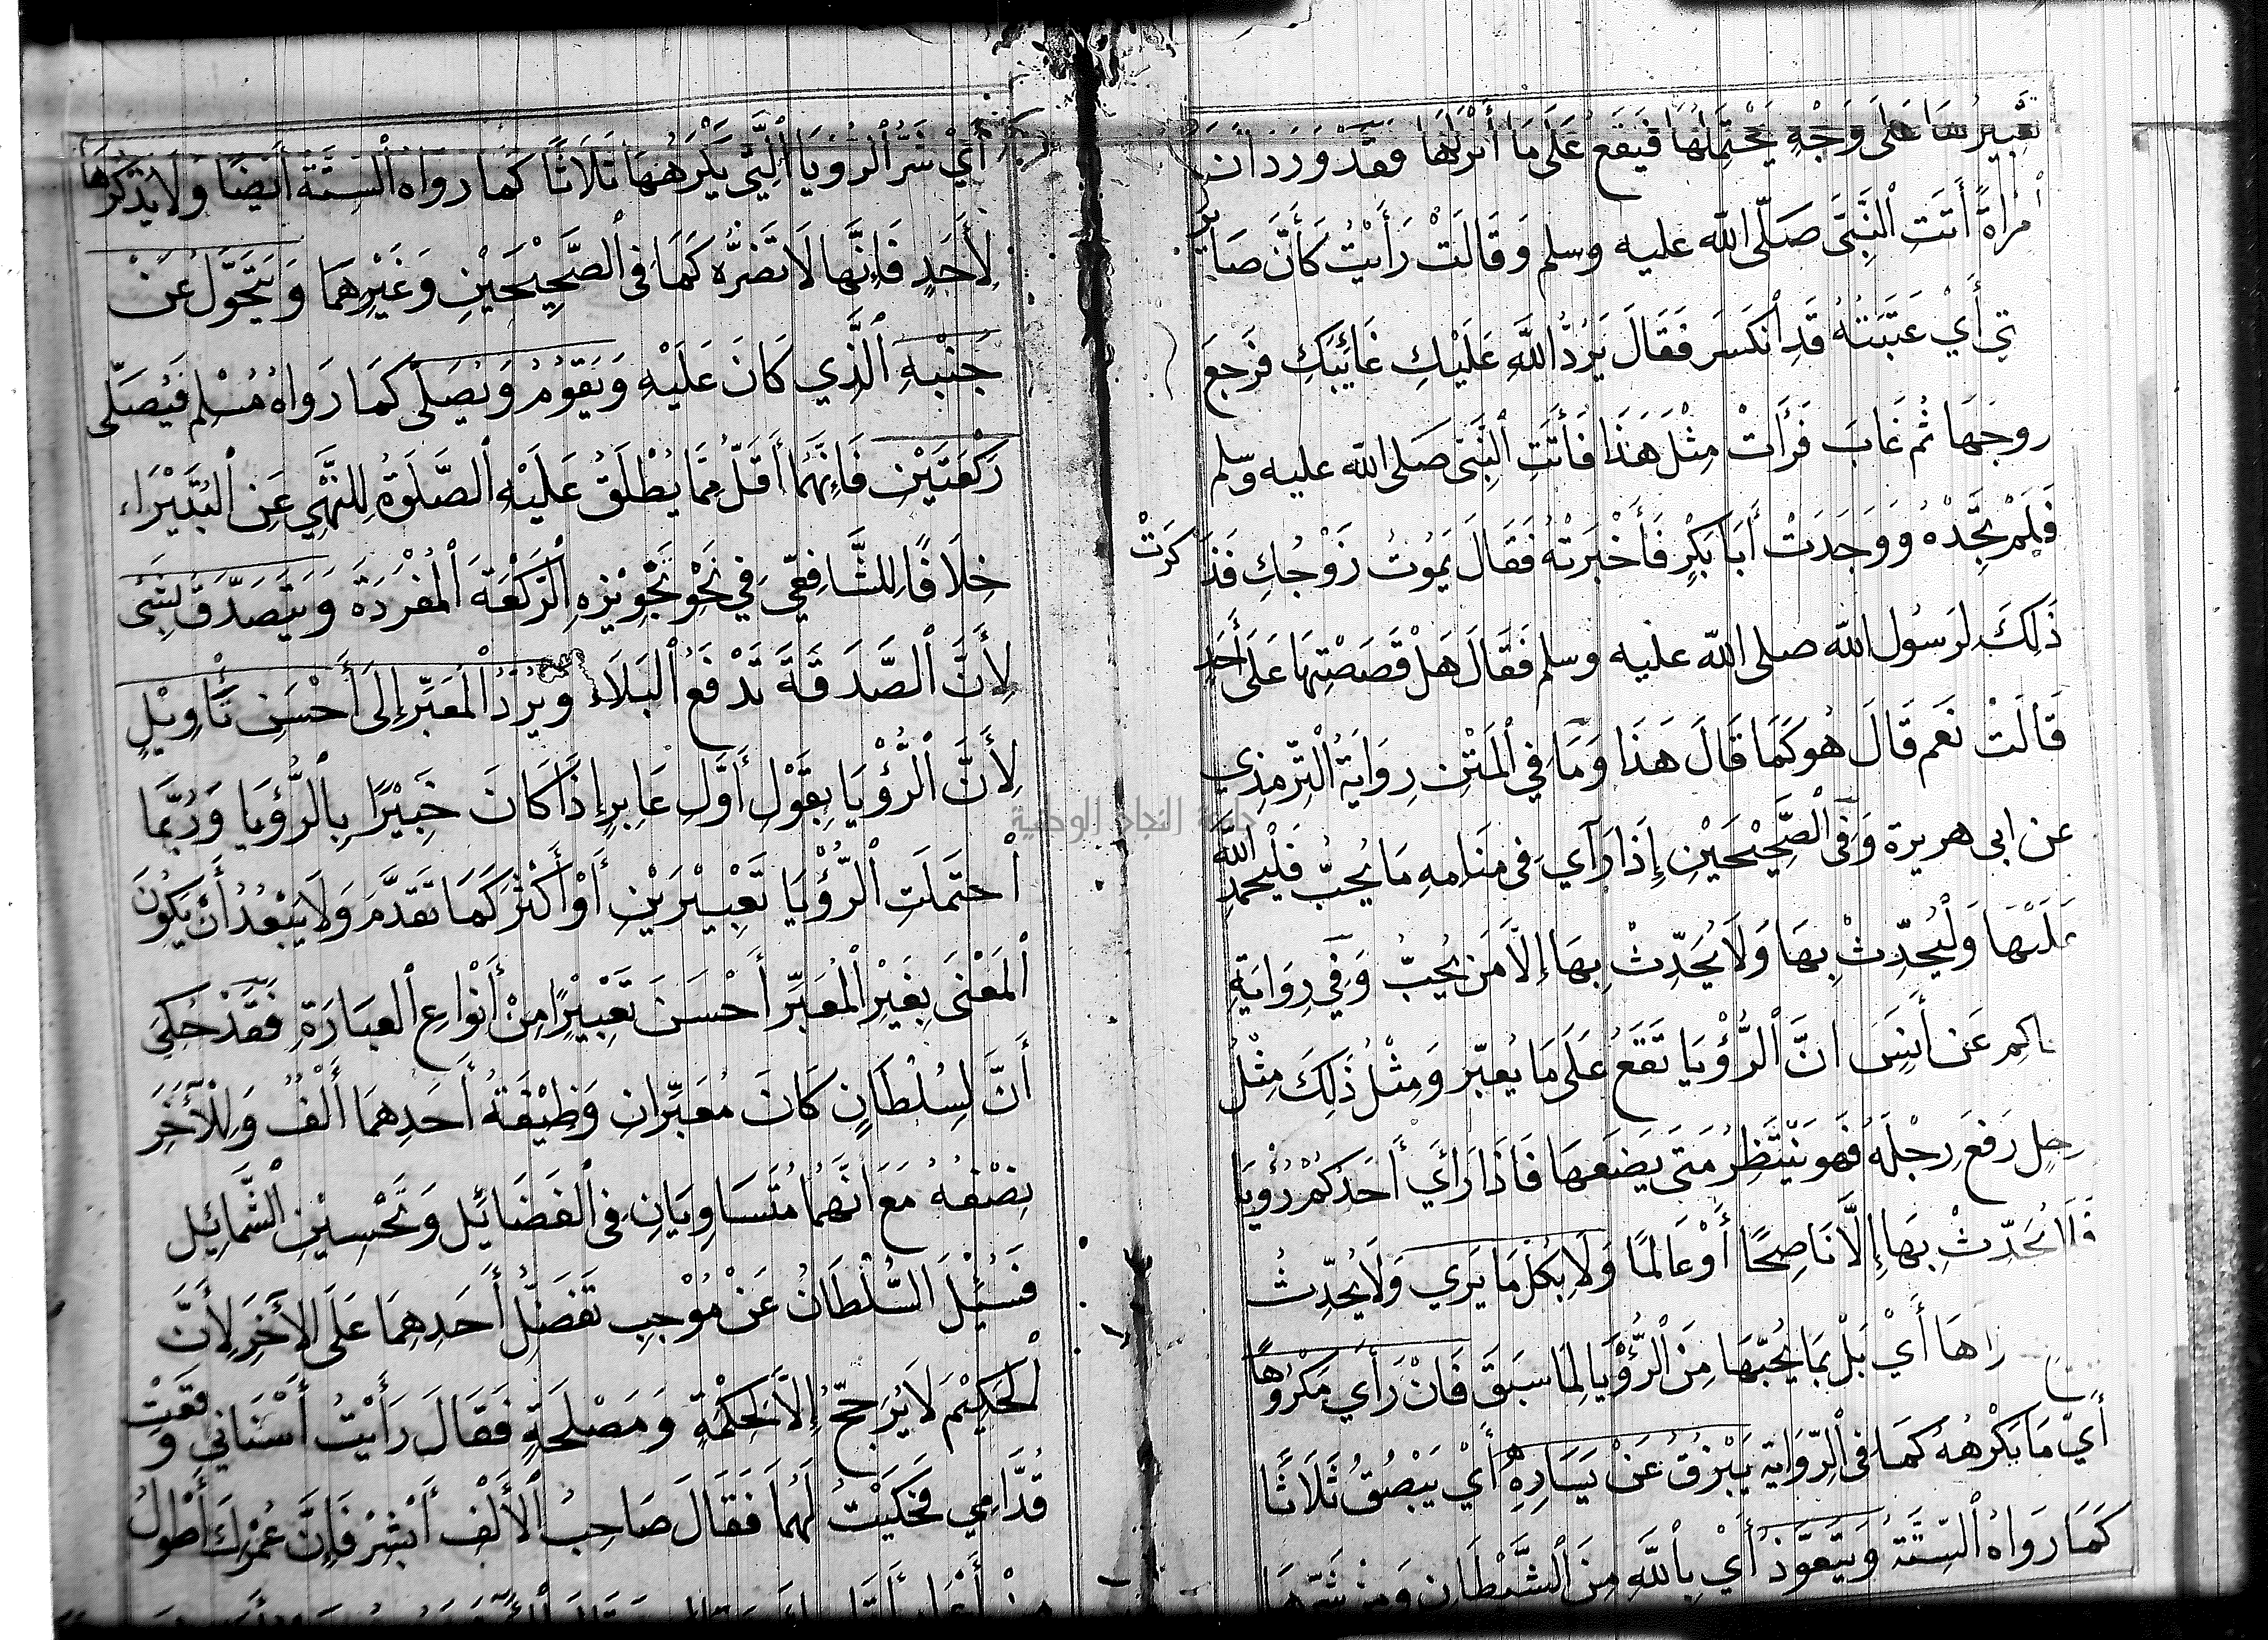 تَعْبِيرُهَا عَلَى وَجْهٍ يَحْتَمِلُهَا فَيَقَعُ عَلَى مَا أَنْزَلَهَا فَقَدْ وَرَدَ ان
اْمْرَاةً أَتَتِ اْلنَّبِيَّ صَلَّى اللّه عليه وسلم وَقَالَتْ رَأَيْتُ كَأَنَّ صَايِر
تِي أَيْ عَتَبَتَهُ قَدِ اْنْكَسَرَ فَقَالَ يَرُدُّ اللَّهِ عَلَيْكِ غَائِبَكِ فَرَجَعَ
روجَهَا ثُم غَابَ فَرَأَتْ مِثْلَ هَذَا فَأَتَتِ اْلنَّبِيَّ صَلى اللّه عليه وسلم
فَلَمْ تَجِدْهُ وَوَجَدَتْ أَبَا بَكْرٍ فَأَخْبَرَتْهُ فَقَالَ يَمُوتُ زَوْجُكِ فَذَكَرَتْ
ذَلِكَ لِرَسُولِ اللّه صلى اللّه عليه وسلم فَقَالَ هَلْ قَصَصْتِهَا عَلَى أَحَدٍ
قَالَتْ نَعَم قَالَ هُو كَمَا قَالَ هَذَا وَمَا فِي اْلمَتْنِ رِوَايَةُ اْلتّرْمِذِي
عن ابى هريرة وَفِى اْلصَّحِيْحَيْنِ إِذَا رَآي فِى مَنَامِهِ مَا يُحِبُّ فَلْيَحْمَدِ اللَّهَ
عَلَيْهَا وَلْيُحَدِّثْ بِهَا وَلَا يُحَدِّثْ بِهَا إِلَّا مَن يُحِبُّ وَفِي رِوَايَةِ
اكِمِ عَن أَنَسٍ انَّ اْلرُّؤْيَا تَقَعُ عَلَى مَا يُعبّر وَمِثْلُ ذَلِكَ مِثْلُ
رجلٍ رَفَعَ رِجْلَهُ فَهو يَنْتَظِرُ مَتَى يَضَعهَا فَاذَا رَأَي أَحَدُكُمْ رُؤْيَا
فَلَا يُحَدِّثْ بِهَا إِلَّا نَاصِحًا أَوْ عَالمًا وَلَا بِكُلّ مَا يَرَي وَلَا يُحَدِّث
رَاهَا أَيْ بَلْ بِمَا يُحِبّهَا مِنَ اْلرُّؤْيَا لِمَا سَبَقَ فَانْ رَأَي مَكْرُوهًا
أَيّ مَا يَكْرَهُهُ كَمَا فِى اْلرِّوَايَةِ يَبْزقُ عَنْ يَسَارِهِ أَيْ يَبْصُقُ ثَلَاثًا
كَمَا رَوَاهُ اْلسِّتَّةُ وَيَتَعَوَّذُ أَيْ بِاْللَّهِ مِنَ اْلشَّيْطَانِ وَمِنْ شَرِّهَا
أَيْ شَرِّ اْلرُّؤيَا اْلَّتِي يَكْرَهُهَا ثَلَاثًا كَمَا رواهُ اْلسِتَّةُ أَيْضًا وَلَا يَذْكُرُهَا
لِأَحَدٍ فَاِنَّها لَا تَضرُّه كَمَا فِى اْلصَّحِيْحَيْنِ وَغَيْرِهمَا وَيَتَحَوَّلُ عَنْ
جَنْبهِ اْلَّذِي كَانَ عَلَيْهِ وَيَقوُمُ وَيُصَلّى كَمَا رَوَاهُ مُسْلِم فَيُصَلِّى
رَكْعَتَيْنِ فَاِنَّهَمَا أَقَلّ مِمَّا يُطْلَقُ عَلَيْهِ اْلصَّلَوةُ لِلنَّهْيِ عَنِ اْلبُتَيْرَاءِ
خِلَافًا لِلشَّافِعِيِّ فِي نَحْوِ تَجْوِيْزِهِ اِلْرَكْعَةَ اْلمُفْرَدَةَ وَيَتَصَدَّقُ بِشَيْءٍ
لِأَنَّ اْلصَّدَقَةَ تَدْفَعُ اْلبَلَاءَ وَيَرُدُّ اْلمُعَبّرَ إِلَى أَحْسَنِ تَأْوِيْلٍ
لِأَنَّ اْلرُّؤْيَا بِقَوْلِ أَوَّلِ عَابِرٍ إِذَا كَانَ خَبِيْرًا بِاْلرُّؤيَا وَرُبَّمَا
اْحتَمَلَتِ اْلرُّؤْيَا تَعْبِيْرَيْنِ أَوْ أَكْثَرَ كَمَا تَقَدَّمَ وَلَا يَبْعُدُ أَنْ يَكُونَ
اْلمَعْنَى بِغَيْرِ اْلمُعَبِّرِ أَحْسَنَ تَعْبِيْرًا مِنْ أَنْوَاعِ اْلعبَارَةِ فَقَدْ حُكِيَ
أَنَّ لِسُلْطَانٍ كَانَ مُعَبِّرَانِ وَظِيْفَةُ أَحَدِهمَا أَلْفٌ وَلِلْآخَرِ
نِصْفُهُ مَعَ أَنَّهُمَا مُتَسَاوِيَانِ فِى اْلفَضَائِل وَتَحْسِيْنِ اْلشَّمَائِيلِ
فَسُئِلَ السُّلْطَانُ عَنْ مُوْجِبِ تَفَضُّلِ أَحَدِهِمَا عَلَى الآخَرِ لِأَنَّ
اْلحَكِيْمَ لَا يُرَجِّحُ إِلَّا لِحِكْمَةٍ وَمَصْلَحَةٍ فَقَالَ رَأَيْتُ أَسْنَانِي وَقَعَتْ
قُدَّامِي فَحَكَيْتُ لَهُمَا فَقَالَ صَاحِبُ اْلأَلْفِ أَبْشِرْ فَإِنَّ عُمْرَكَ أَطْوَلُ
جامعة النجاح الوطنية